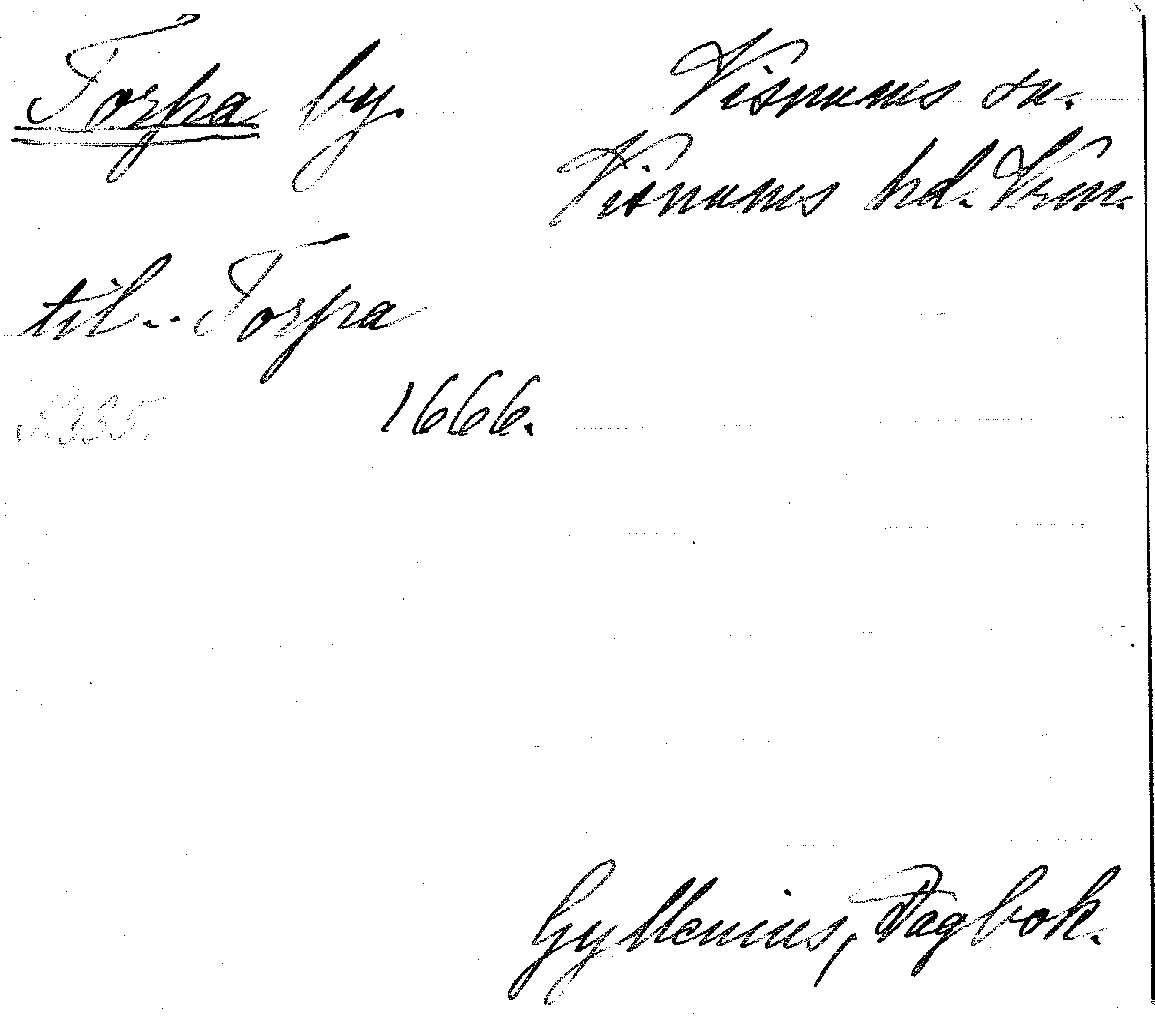 Torpa by. Visnums sn.
Visnums hrd. Vrm.
til -- Torpa
S. 335. 1666.
Gyllenius, Dagbok.